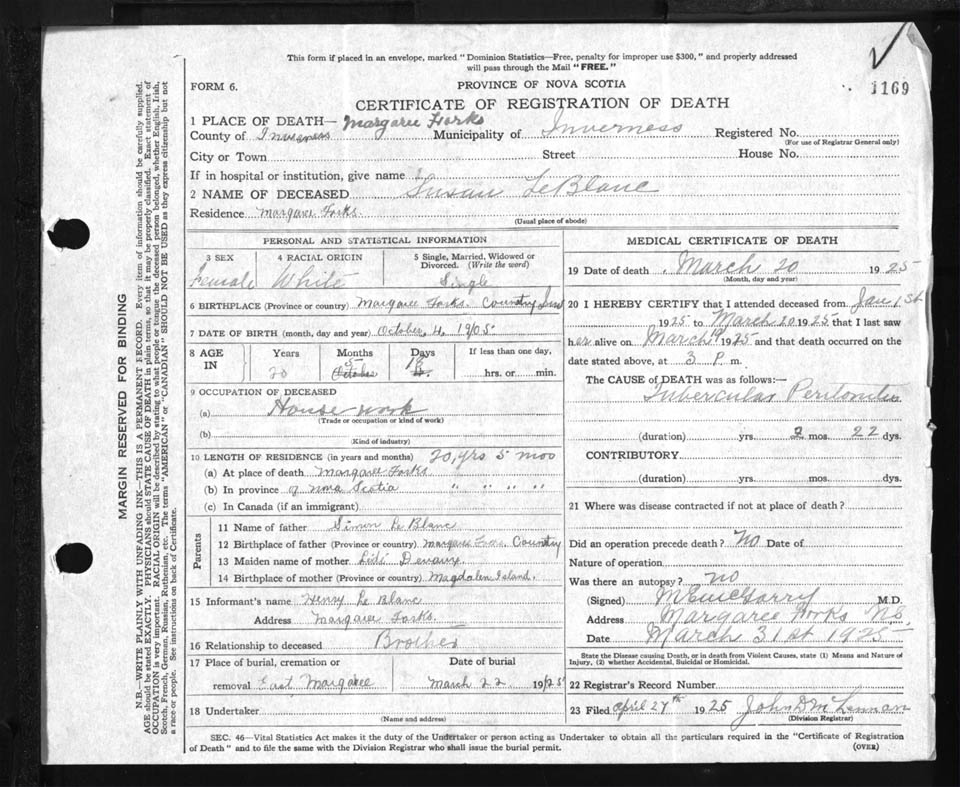 This form if placed in an envelope, marked "Dominion Statistics—Free, penalty for improper use $300," and properly addressed
will pass through the Mail "FREE."
1169
FORM 6.
PROVINCE OF NOVA SCOTIA
CERTIFICATE OF REGISTRATION OF DEATH
1 PLACE OF DEATH— Margaree Forks
County of Inverness Municipality of Inverness Registered No.
(For use of Registrar General only)
City or Town Street House No.
If in hospital or institution, give name
2 NAME OF DECEASED Susan LeBlanc
Residence Margaree Forks
(Usual place of abode)
PERSONAL AND STATISTICAL INFORMATION
3 SEX 4 RACIAL ORIGIN 5 Single, Married, Widowed or
Divorced. (Write the word)
Female White Single
6 BIRTHPLACE (Province or country) Margaree Forks. Country
7 DATE OF BIRTH (month, day and year) October 4 1905
8 AGE IN Years Months Days If less than one day,
20 5 October hrs. or min.
9 OCCUPATION OF DECEASED
(a) House work
(Trade or occupation or kind of work)
(b)
(Kind of industry)
10 LENGTH OF RESIDENCE (in years and months) 20, yrs 5 mos
(a) At place of death Margaree Forks
(b) In province of Nova Scotia " " " "
(c) In Canada (if an immigrant)
Parents
11 Name of father Simon Le Blanc
12 Birthplace of father (Province or country) Margaree Forks Country
13 Maiden name of mother
14 Birthplace of mother (Province or country) Magdalen Island.
15 Informant's name Henry Le Blanc
Address Margaree Forks.
16 Relationship to deceased Brother
17 Place of burial, cremation or Date of burial
removal East Margaree March 22 1925
18 Undertaker
(Name and address)
MEDICAL CERTIFICATE OF DEATH
19 Date of death March 20 1925
(Month, day and year)
20 I HEREBY CERTIFY that I attended deceased from Jan 1st
1925 to March 20 1925 that I last saw
her alive on March 19 1925 and that death occurred on the
date stated above, at 3 P. m.
The CAUSE OF DEATH was as follows:—
Tubercular Peritonitis
(duration) yrs. 2 mos. 22 dys.
CONTRIBUTORY
(duration) yrs. mos. dys.
21 Where was disease contracted if not at place of death?
Did an operation precede death? No Date of
Nature of operation
Was there an autopsy? no
(Signed) M.D.
Address Margaree Forks N.S.
Date March 31st 1925
State the Disease causing Death, or in death from Violent Causes, state (1) Means and Nature of
Injury, (2) whether Accidental, Suicidal or Homicidal.
22 Registrar's Record Number
23 Filed April 27th 1925 John D McLennan
(Division Registrar)
SEC. 46—Vital Statistics Act makes it the duty of the Undertaker or person acting as Undertaker to obtain all the particulars required in the "Certificate of Registration
of Death" and to file the same with the Division Registrar who shall issue the burial permit.
(OVER)
MARGIN RESERVED FOR BINDING
N.B.—WRITE PLAINLY WITH UNFADING INK—THIS IS A PERMANENT RECORD. Every item of information should be carefully supplied.
AGE should be stated EXACTLY. PHYSICIANS should STATE CAUSE OF DEATH in plain terms, so that it may be properly classified. Exact statement of
OCCUPATION is very important. RACIAL ORIGIN will be described by stating to what people or tongue the deceased person belonged, whether English, Irish,
Scotch, French, German, Russian, Ruthenian, etc. The terms "AMERICAN" or "CANADIAN" SHOULD NOT BE USED as they express citizenship but not
a race or people. See instructions on back of Certificate.